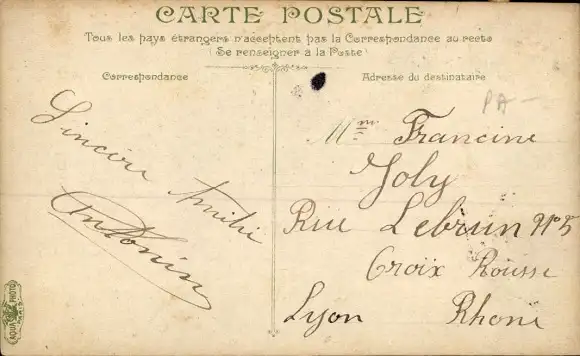 CARTE POSTALE
Tous les pays étrangers n'acceptent pas la Correspondance au recto
(Se renseigner à la Poste)
Correspondance
Adresse du destinataire
PA-
Sincère Amitié
Antonin
Mme Francine
Joly
Rue Lebrun N° 5
Croix Rousse
Lyon Rhone
AQUA PHOTO
PARIS